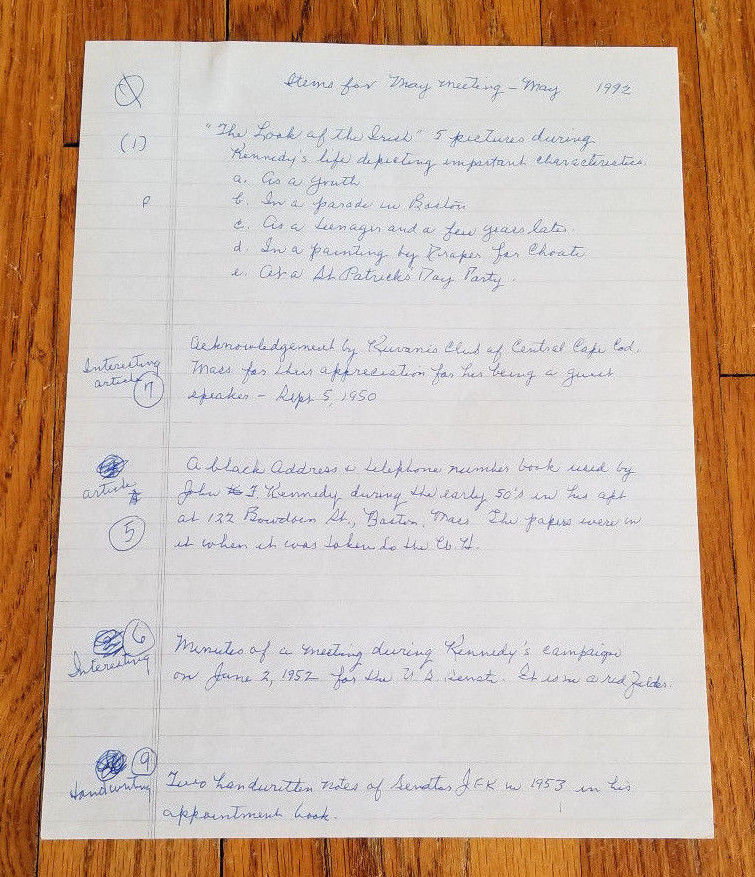 Items for May meeting - May 1992
(1) "The Look of the Irish" 5 pictures during
Kennedy's life depicting important characteristics.
a. As a youth
P b. In a parade in Boston
c. As a teenager and a few years later.
d. In a painting by Draper for Choate
e. At a St. Patrick's Day Party.
Interesting article 7
Acknowledgement by Kiwanis Club of Central Cape Cod,
Mass for their appreciation for his being a guest
speaker - Sept 5, 1950
article 5
A black Address & telephone number book used by
John F. Kennedy during the early 50's in his apt
at 122 Bowdoin St., Boston, Mass. The papers were in
it when it was taken to the W. H.
6 Interesting
Minutes of a meeting during Kennedy's campaign
on June 2, 1952 for the U.S. Senate. It is in a red folder.
9 Handwriting
Two handwritten notes of Senator JFK in 1953 in his
appointment book.